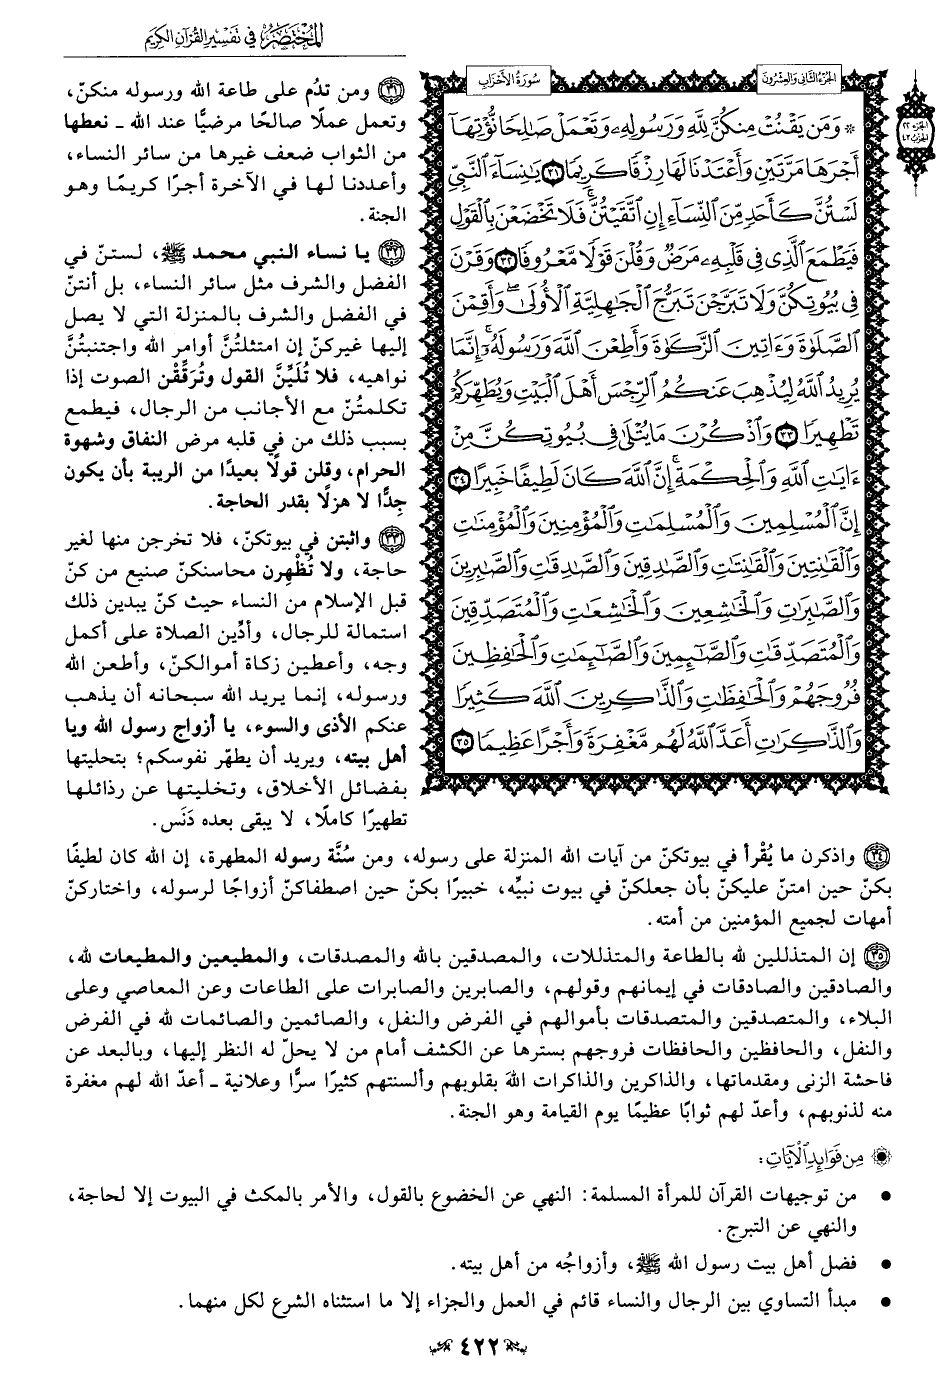 المُخْتَصَرُ فِي تَفْسِيرِ القُرْآنِ الكَرِيمِ
الجُزْءُ الثَّانِي وَالعِشْرُونَ
سُورَةُ الأَحْزَابِ
الجزء ٢٢
الحزب ٤٣
* وَمَن يَقْنُتْ مِنكُنَّ لِلَّهِ وَرَسُولِهِۦ وَتَعْمَلْ صَٰلِحًا نُّؤْتِهَآ
أَجْرَهَا مَرَّتَيْنِ وَأَعْتَدْنَا لَهَا رِزْقًا كَرِيمًا ٣١ يَٰنِسَآءَ ٱلنَّبِيِّ
لَسْتُنَّ كَأَحَدٍ مِّنَ ٱلنِّسَآءِ إِنِ ٱتَّقَيْتُنَّۚ فَلَا تَخْضَعْنَ بِٱلْقَوْلِ
فَيَطْمَعَ ٱلَّذِي فِي قَلْبِهِۦ مَرَضٌ وَقُلْنَ قَوْلًا مَّعْرُوفًا ٣٢ وَقَرْنَ
فِي بُيُوتِكُنَّ وَلَا تَبَرَّجْنَ تَبَرُّجَ ٱلْجَٰهِلِيَّةِ ٱلْأُولَىٰۖ وَأَقِمْنَ
ٱلصَّلَوٰةَ وَءَاتِينَ ٱلزَّكَوٰةَ وَأَطِعْنَ ٱللَّهَ وَرَسُولَهُۥٓۚ إِنَّمَا
يُرِيدُ ٱللَّهُ لِيُذْهِبَ عَنكُمُ ٱلرِّجْسَ أَهْلَ ٱلْبَيْتِ وَيُطَهِّرَكُمْ
تَطْهِيرًا ٣٣ وَٱذْكُرْنَ مَا يُتْلَىٰ فِي بُيُوتِكُنَّ مِنْ
ءَايَٰتِ ٱللَّهِ وَٱلْحِكْمَةِۚ إِنَّ ٱللَّهَ كَانَ لَطِيفًا خَبِيرًا ٣٤
إِنَّ ٱلْمُسْلِمِينَ وَٱلْمُسْلِمَٰتِ وَٱلْمُؤْمِنِينَ وَٱلْمُؤْمِنَٰتِ
وَٱلْقَٰنِتِينَ وَٱلْقَٰنِتَٰتِ وَٱلصَّٰدِقِينَ وَٱلصَّٰدِقَٰتِ وَٱلصَّٰبِرِينَ
وَٱلصَّٰبِرَٰتِ وَٱلْخَٰشِعِينَ وَٱلْخَٰشِعَٰتِ وَٱلْمُتَصَدِّقِينَ
وَٱلْمُتَصَدِّقَٰتِ وَٱلصَّٰٓئِمِينَ وَٱلصَّٰٓئِمَٰتِ وَٱلْحَٰفِظِينَ
فُرُوجَهُمْ وَٱلْحَٰفِظَٰتِ وَٱلذَّٰكِرِينَ ٱللَّهَ كَثِيرًا
وَٱلذَّٰكِرَٰتِ أَعَدَّ ٱللَّهُ لَهُم مَّغْفِرَةً وَأَجْرًا عَظِيمًا ٣٥
٣١ ومن تدُم على طاعة الله ورسوله منكنّ،
وتعمل عملًا صالحًا مرضيًّا عند الله ـ نعطها
من الثواب ضعف غيرها من سائر النساء،
وأعددنا لها في الآخرة أجرًا كريمًا وهو
الجنة.
٣٢ يا نساء النبي محمد ﷺ، لستنّ في
الفضل والشرف مثل سائر النساء، بل أنتنّ
في الفضل والشرف بالمنزلة التي لا يصل
إليها غيركنّ إن امتثلتُنَّ أوامر الله واجتنبتُنَّ
نواهيه، فلا تُلَيِّنَّ القول وتُرَقِّقْن الصوت إذا
تكلمتُنّ مع الأجانب من الرجال، فيطمع
بسبب ذلك من في قلبه مرض النفاق وشهوة
الحرام، وقلن قولًا بعيدًا من الريبة بأن يكون
جِدًّا لا هزلًا بقدر الحاجة.
٣٣ واثبتن في بيوتكنّ، فلا تخرجن منها لغير
حاجة، ولا تُظْهِرن محاسنكنّ صنيع من كنّ
قبل الإسلام من النساء حيث كنّ يبدين ذلك
استمالة للرجال، وأدِّين الصلاة على أكمل
وجه، وأعطين زكاة أموالكنّ، وأطعن الله
ورسوله، إنما يريد الله سبحانه أن يذهب
عنكم الأذى والسوء، يا أزواج رسول الله ويا
أهل بيته، ويريد أن يطهّر نفوسكم؛ بتحليتها
بفضائل الأخلاق، وتخليتها عن رذائلها
تطهيرًا كاملًا، لا يبقى بعده دَنَس.
٣٤ واذكرن ما يُقْرأ في بيوتكنّ من آيات الله المنزلة على رسوله، ومن سُنَّة رسوله المطهرة، إن الله كان لطيفًا
بكنّ حين امتنّ عليكنّ بأن جعلكنّ في بيوت نبيِّه، خبيرًا بكنّ حين اصطفاكنّ أزواجًا لرسوله، واختاركنّ
أمهات لجميع المؤمنين من أمته.
٣٥ إن المتذللين لله بالطاعة والمتذللات، والمصدقين بالله والمصدقات، والمطيعين والمطيعات لله،
والصادقين والصادقات في إيمانهم وقولهم، والصابرين والصابرات على الطاعات وعن المعاصي وعلى
البلاء، والمتصدقين والمتصدقات بأموالهم في الفرض والنفل، والصائمين والصائمات لله في الفرض
والنفل، والحافظين والحافظات فروجهم بسترها عن الكشف أمام من لا يحلّ له النظر إليها، وبالبعد عن
فاحشة الزنى ومقدماتها، والذاكرين والذاكرات الله بقلوبهم وألسنتهم كثيرًا سرًّا وعلانية ـ أعدّ الله لهم مغفرة
منه لذنوبهم، وأعدّ لهم ثوابًا عظيمًا يوم القيامة وهو الجنة.
مِن فَوَائِدِ الآيَاتِ:
• من توجيهات القرآن للمرأة المسلمة: النهي عن الخضوع بالقول، والأمر بالمكث في البيوت إلا لحاجة،
والنهي عن التبرج.
• فضل أهل بيت رسول الله ﷺ، وأزواجُه من أهل بيته.
• مبدأ التساوي بين الرجال والنساء قائم في العمل والجزاء إلا ما استثناه الشرع لكل منهما.
٤٢٢